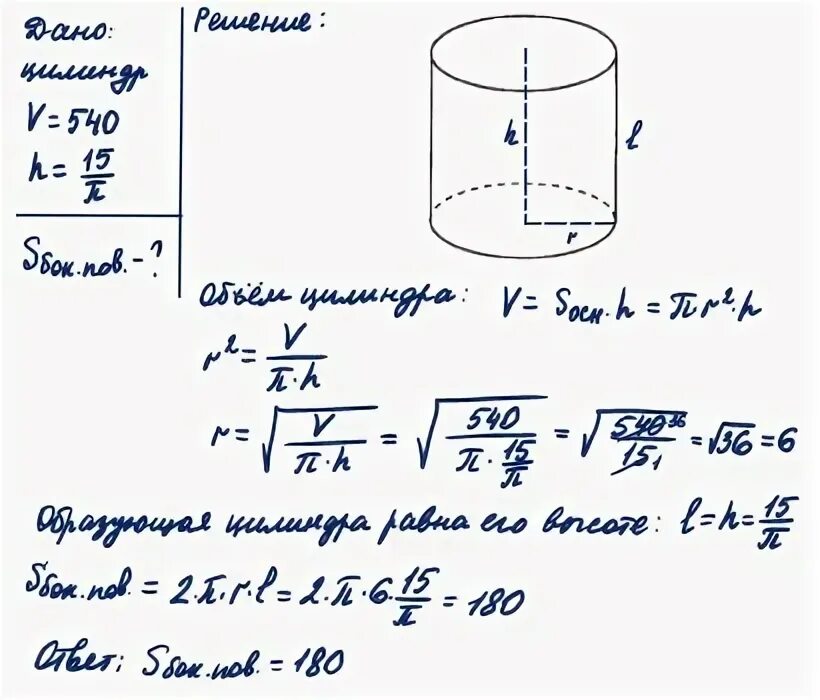 Дано:
цилиндр
V = 540
h = 15/π
Sбок.пов. - ?
Решение:
h
l
r
Объём цилиндра: V = Sосн · h = π r² · h
r² = V/(π · h)
r = √(V/(π · h)) = √(540/(π · 15/π)) = √(540 36/15 1) = √36 = 6
Образующая цилиндра равна его высоте: l = h = 15/π
Sбок.пов. = 2 · π · r · l = 2 · π · 6 · 15/π = 180
Ответ: Sбок.пов. = 180